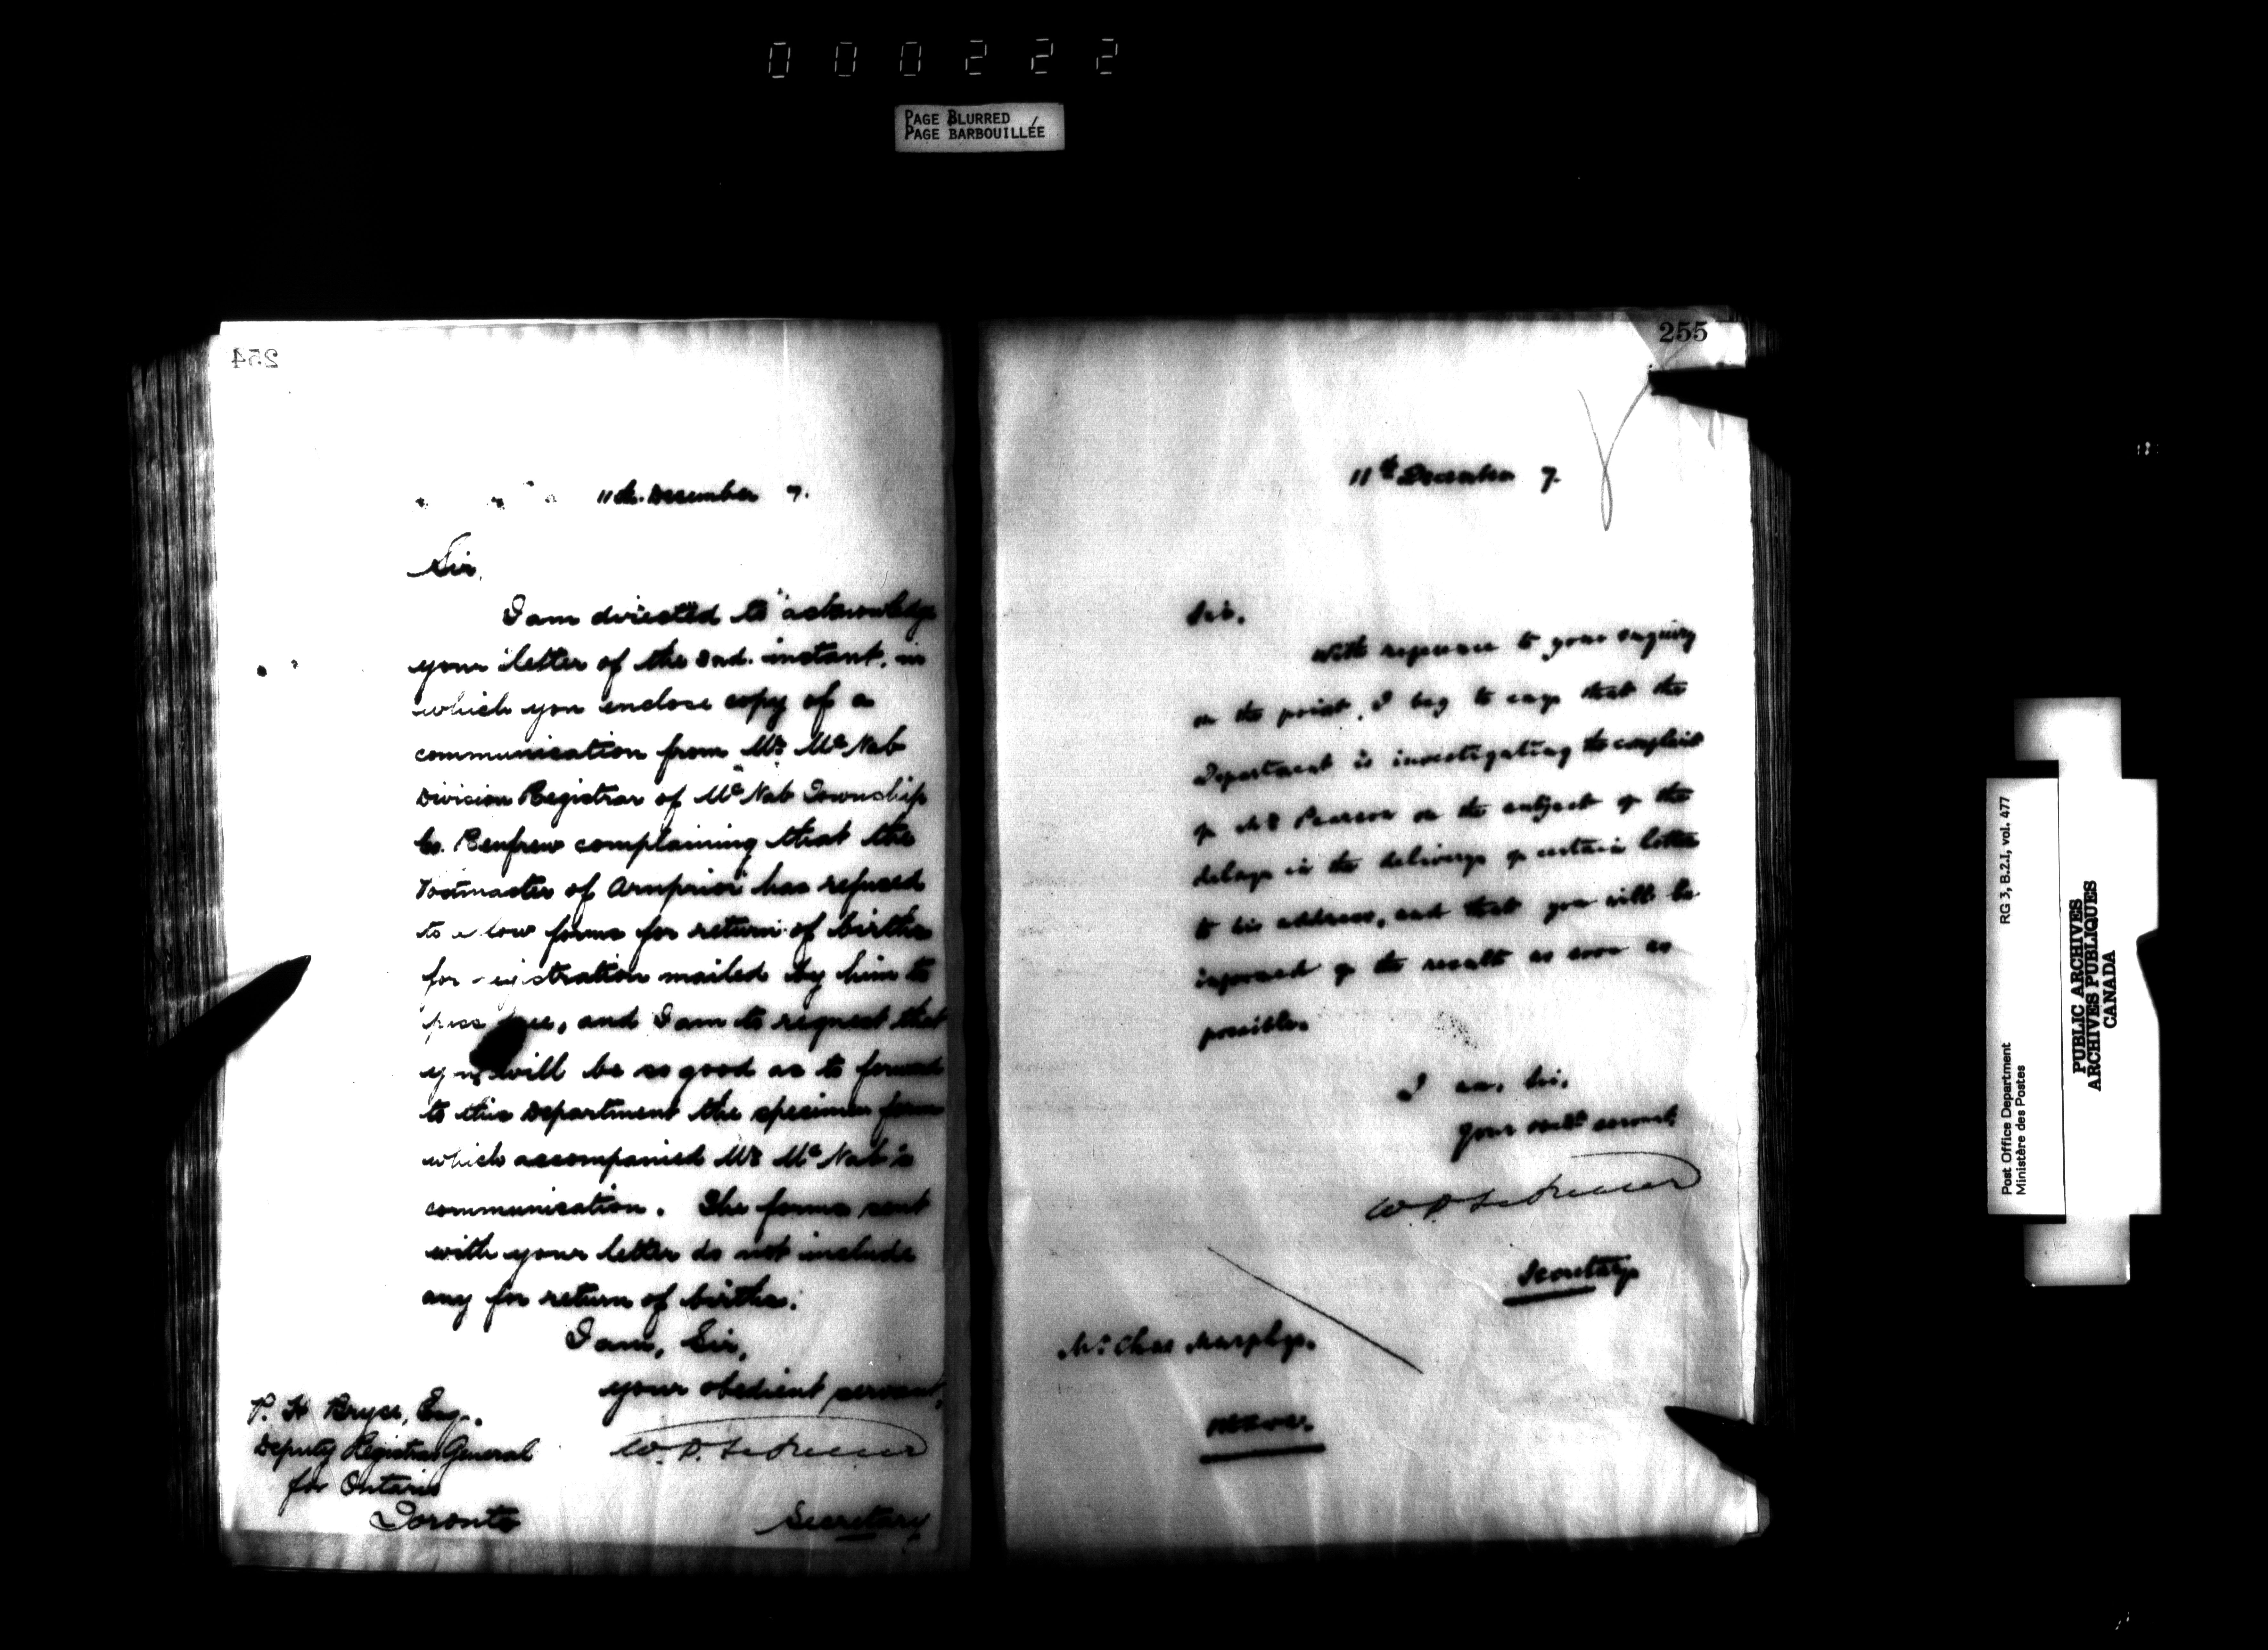 000222
PAGE BLURRED
PAGE BARBOUILLÉE
254
11th. December 7.
Sir,
I am directed to acknowledge
your letter of the 2nd. instant, in
which you enclose copy of a
communication from Mr. McNab
Division Registrar of McNab Township
Co. Renfrew complaining that the
Postmaster of Arnprior has refused
to forms for return of births
for mailed by him to
and I am to request that
you will be so good as to forward
to this Department the specimen form
which accompanied Mr McNab's
communication. The forms sent
with your letter do not include
any for return of births.
I am, Sir,
your obedient servant,
P. H Bryce, Esq.
Deputy Registrar General
for Ontario
Toronto
Secretary
255
11th December 7.
Sir.
With reference to your enquiry
on the point, I beg to say that the
Department is investigating the complaint
of Mr Pearson on the subject of the
delay in the delivery of certain letters
to his address, and that you will be
informed of the result as soon as
possible.
I am, Sir,
Your obedt servant,
Secretary
Mr. Chas Murphy.
Post Office Department
Ministère des Postes
RG 3, B.2.I, vol. 477
PUBLIC ARCHIVES
ARCHIVES PUBLIQUES
CANADA